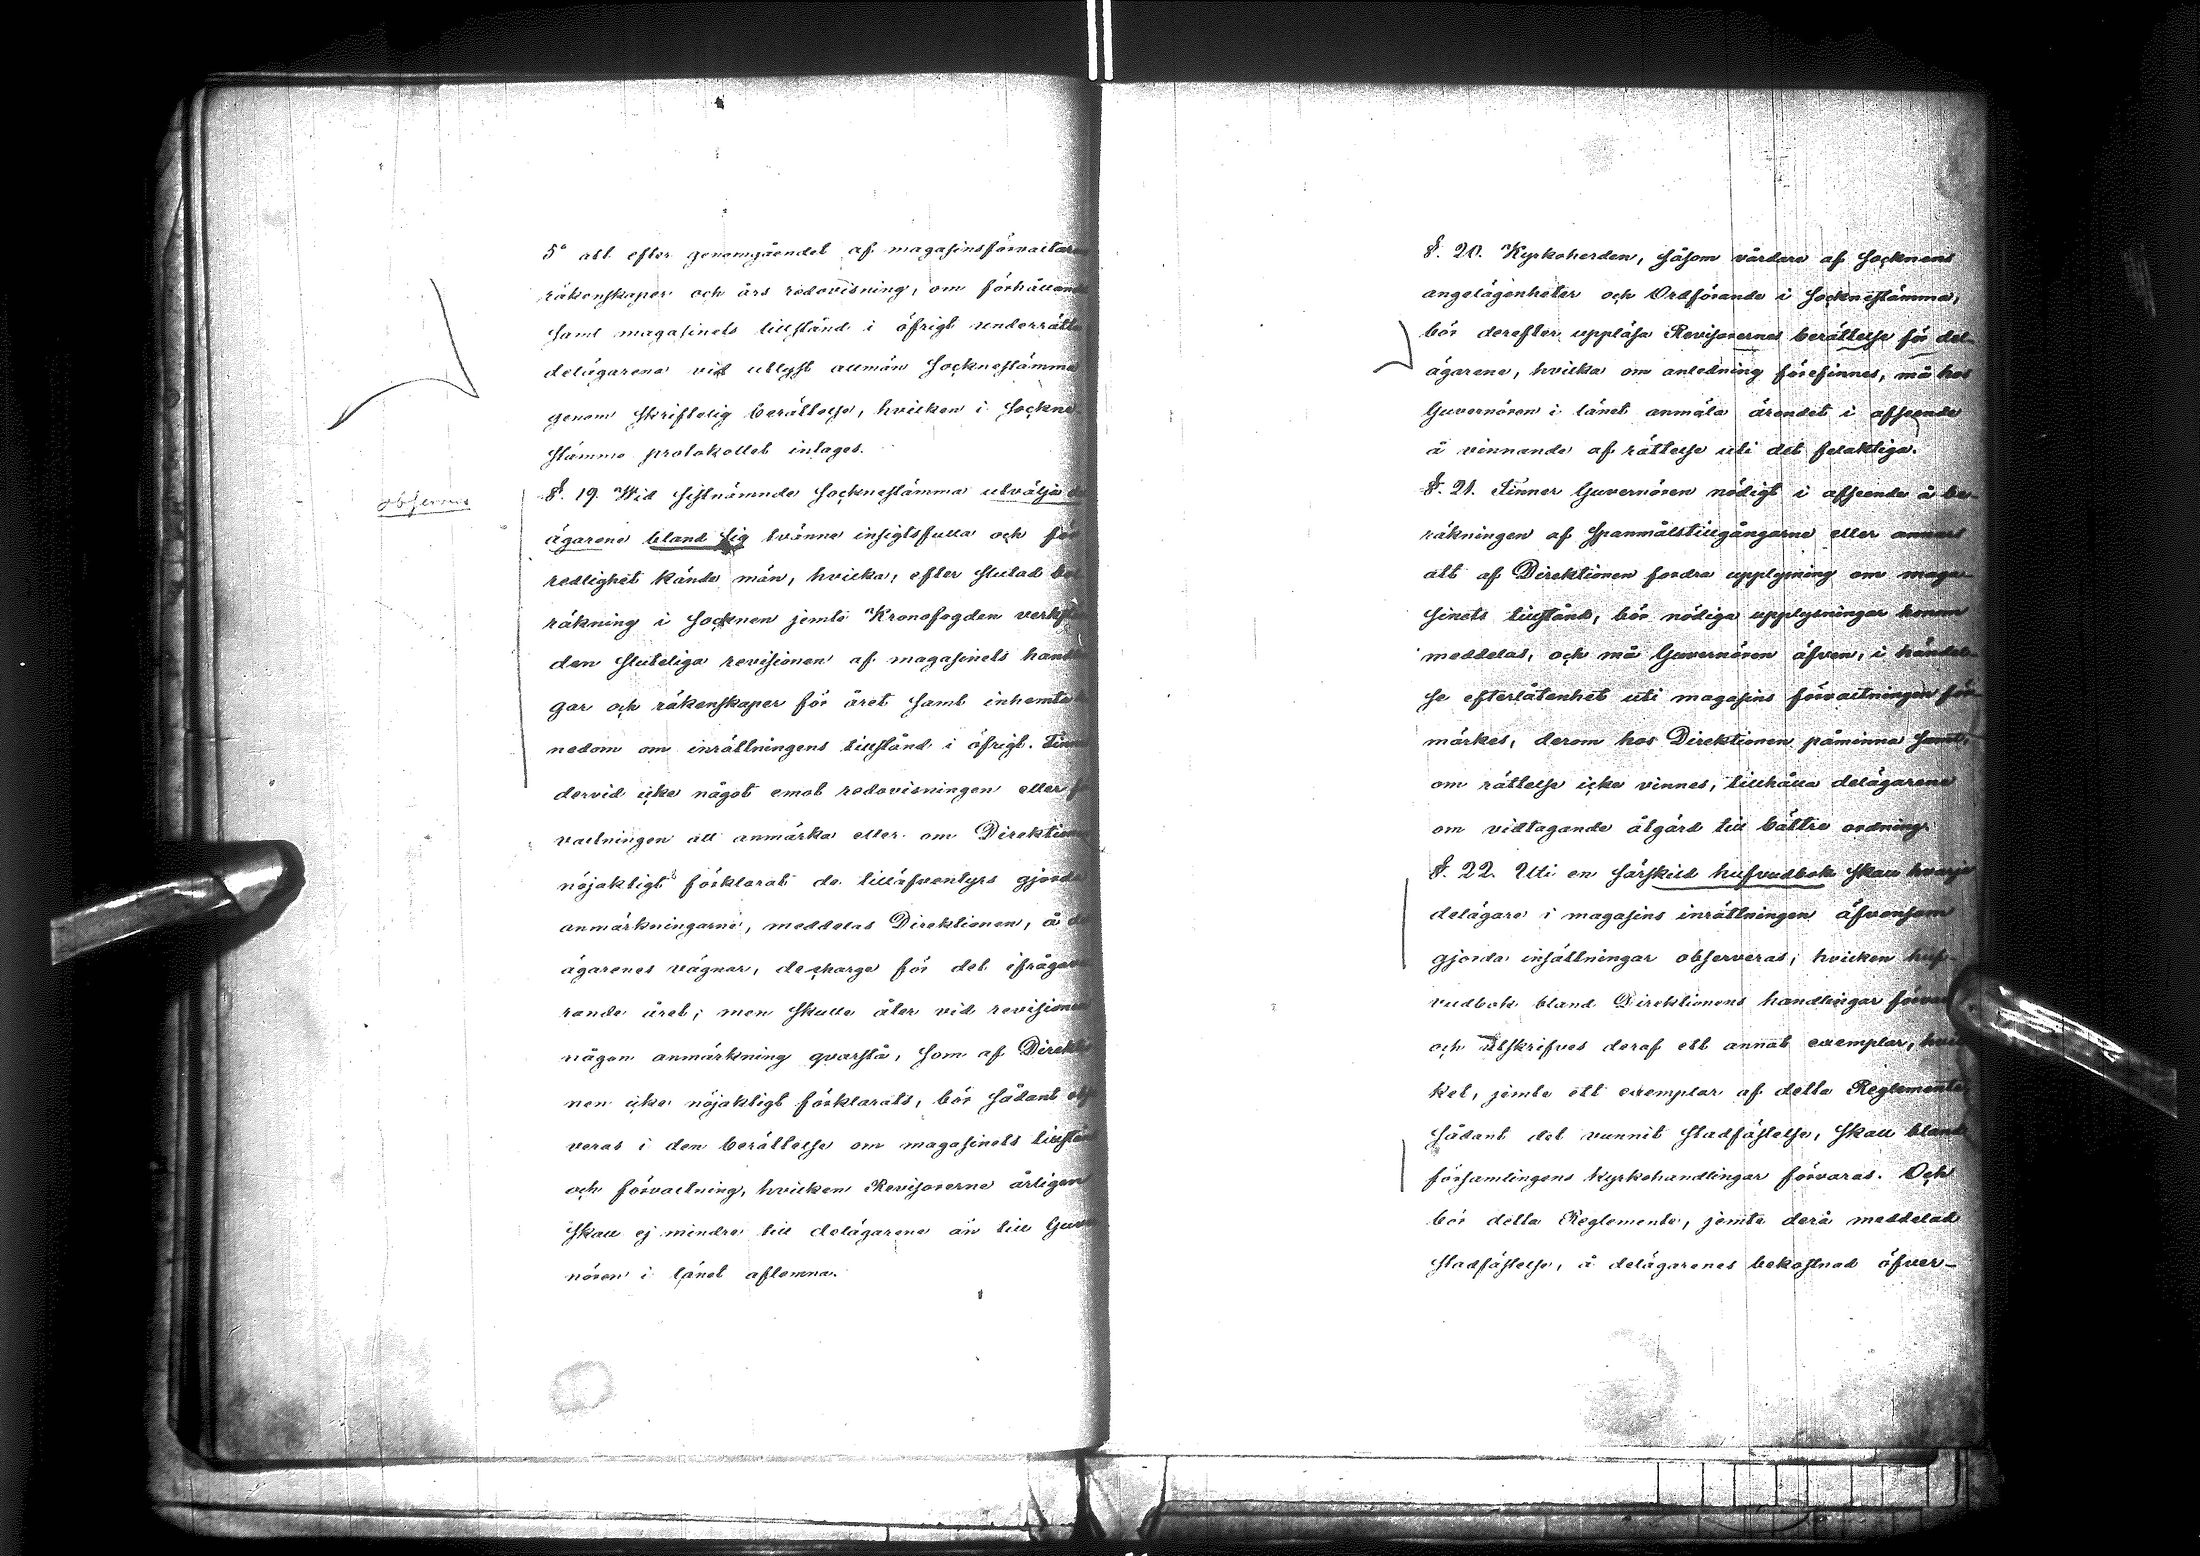 5° att efter genomgåendet af magasinsförvaltare
räkenskaper och års redovisning, om förhålland
samt magasinets tillstånd i öfrigt underrätta
delägarene vid utlyst allmän Socknestämma
genom skriftelig berättelse, hvilken i Sockne-
stämmo protokollet intages.
observeras
§. 19. Wid sistnämnde Socknestämma utvälja
ägarene bland sig tvänne insigtsfulla och för
redlighet kände män, hvilka, efter slutad be
räkning i Socknen jemte Kronofogden verkst
den sluteliga revisionen af magasinets hand
gar och räkenskaper för året samt inhemta
nedom om inrättningens tillstånd i öfrigt. Finn
dervid icke något emot redovisningen eller f
valtningen att anmärka eller om Direktion
nöjaktigt förklarat de tilläfventyrs gjorda
anmärkningarne, meddelas Direktionen, å d
ägarenes vägnar, decharge för det ifrågava
rande året; men skulle åter vid revisionen
någon anmärkning qvarstå, som af Direktio
nen icke nöjaktigt förklarats, bör sådant obs
veras i den berättelse om magasinets tillstånd
och förvaltning, hvilken Revisorerne årligen
skall ej mindre till delägarene än till Guver
nören i länet aflemna.
§. 20. Kyrkoherden, såsom vårdare af Socknens
angelägenheter och Ordförande i Socknestämma,
bör derefter uppläsa Revisorernes berättelse för del-
ägarene, hvilka om anledning förefinnes, må hos
Guvernören i länet anmäla ärendet i afseende
å vinnande af rättelse uti det felaktiga.
§. 21. Finner Guvernören nödigt i afseende å be-
räkningen af Spanmålstillgångarne eller annars
att af Direktionen fordra upplysning om maga-
sinets tillstånd, bör nödiga upplysningar honom
meddelas, och må Guvernören äfven, i händel-
se efterlåtenhet uti magasins förvaltningen för-
märkes, derom hos Direktionen påminna samt,
om rättelse icke vinnes, tillhålla delägarene
om vidtagande åtgärd till bättre ordning.
§. 22. Uti en särskild hufvudbok skall hvarje
delägare i magasins inrättningen äfvensom
gjorda insättningar observeras, hvilken huf-
vudbok bland Direktionens handlingar förvar
och utskrifves deraf ett annat exemplar, hvil
ket, jemte ett exemplar af detta Reglemente
sådant det vunnit stadfästelse, skall bland
församlingens kyrkohandlingar förvaras. Och
bör detta Reglemente, jemte derå meddelad
stadfästelse, å delägarenes bekostnad öfver-